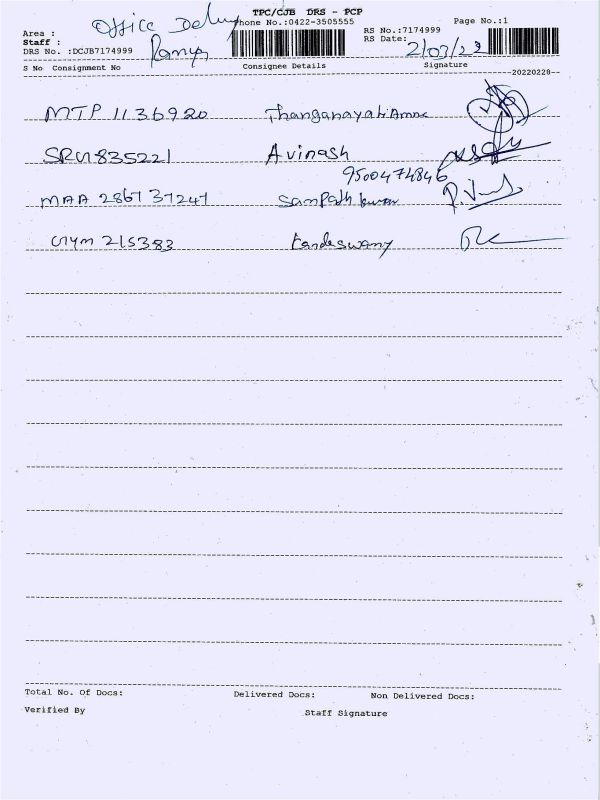 TPC/CJB DRS - PCP
Office
Phone No.:0422-3505555
Page No.:1
Area :
RS No.:7174999
Staff :
RS Date: 2/03/22
DRS No. :DCJB7174999
S No Consignment No Consignee Details Signature
--20220228--
MTP 1136920 Thanganayaki Amma
SRU 835221 Avinash
9500474846
MAA 286737247 Sampath kumar
GYM 215383 Kandeswamy
Total No. Of Docs: Delivered Docs: Non Delivered Docs:
Verified By Staff Signature